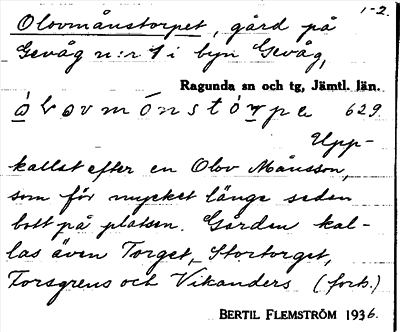 1-2.
Olovmånstorpet, gård på
Gevåg n:r 1 i byn Gevåg,
Ragunda sn och tg, Jämtl. län.
629.
Upp-
kallat efter en Olov Månsson,
som för mycket länge sedan
bott på platsen. Gården kal-
las även Torget, Stortorget,
Forsgrens och Vikanders (forts.)
BERTIL FLEMSTRÖM 1936.